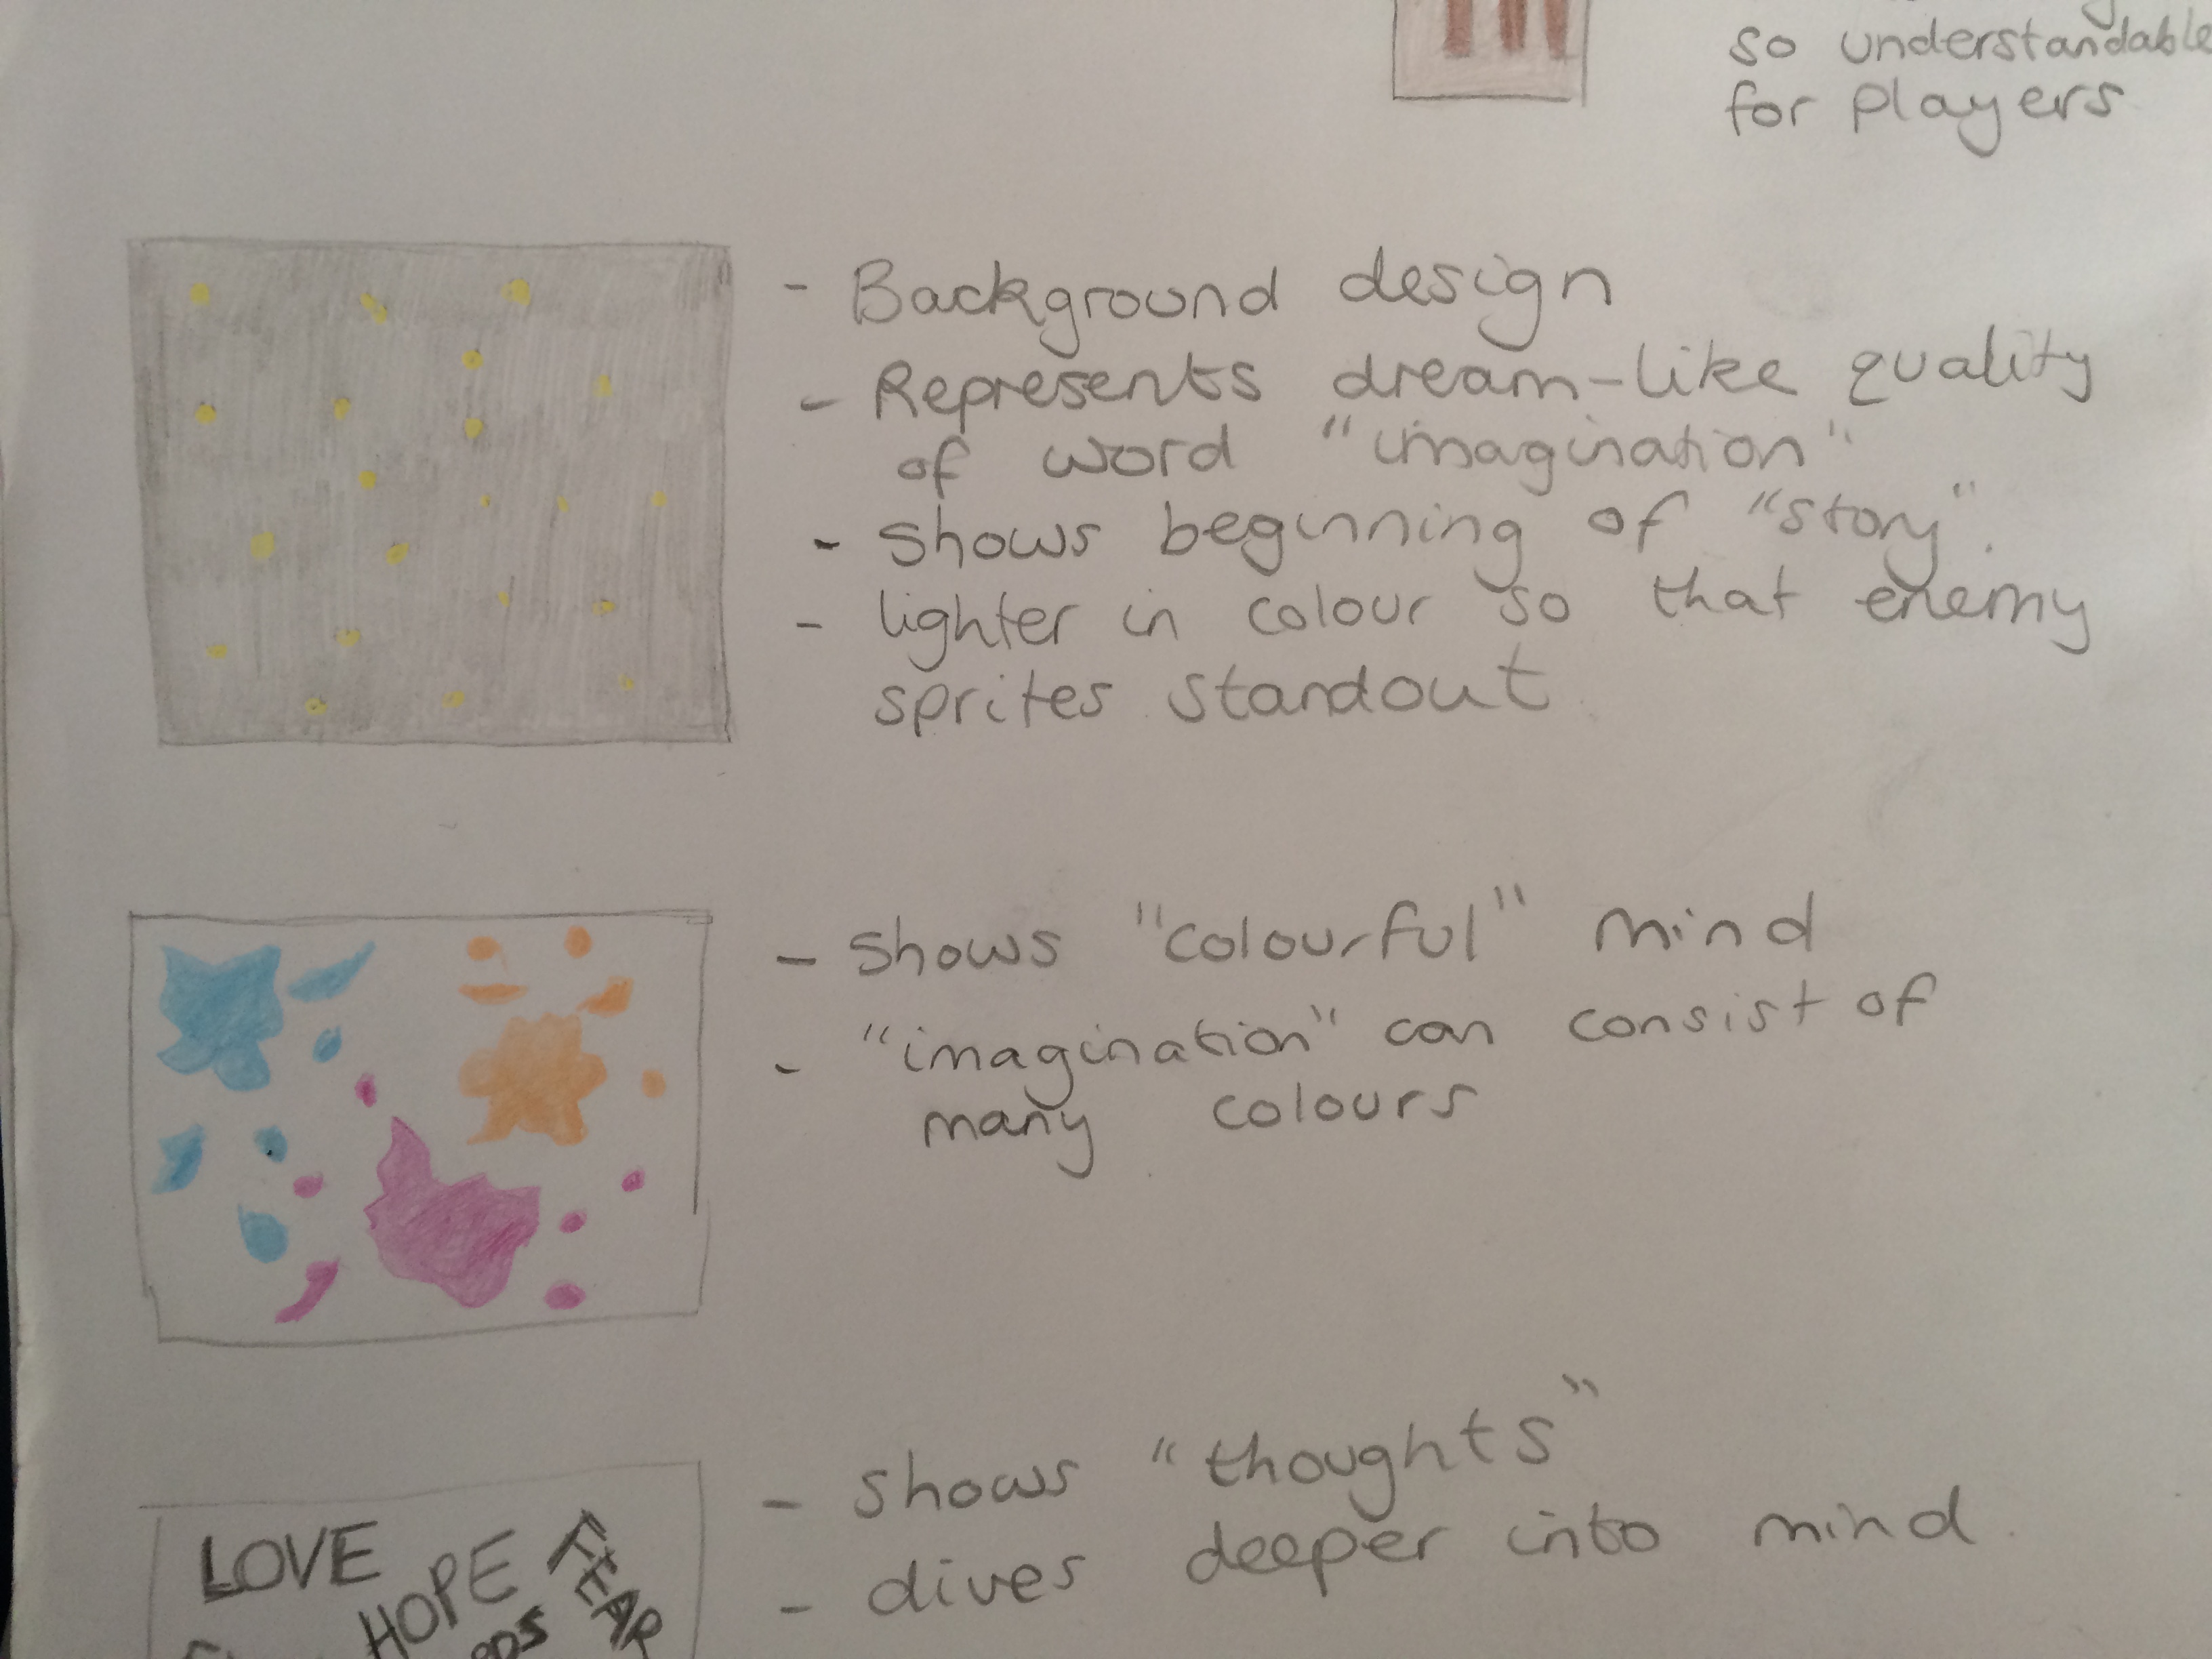 so understandable
for players
- Background design
- Represents dream-like quality
of word "imagination"
- shows beginning of "story"
- lighter in colour so that enemy
sprites standout
- shows "colourful" mind
- "imagination" can consist of
many colours
LOVE
HOPE
- shows "thoughts"
- dives deeper into mind